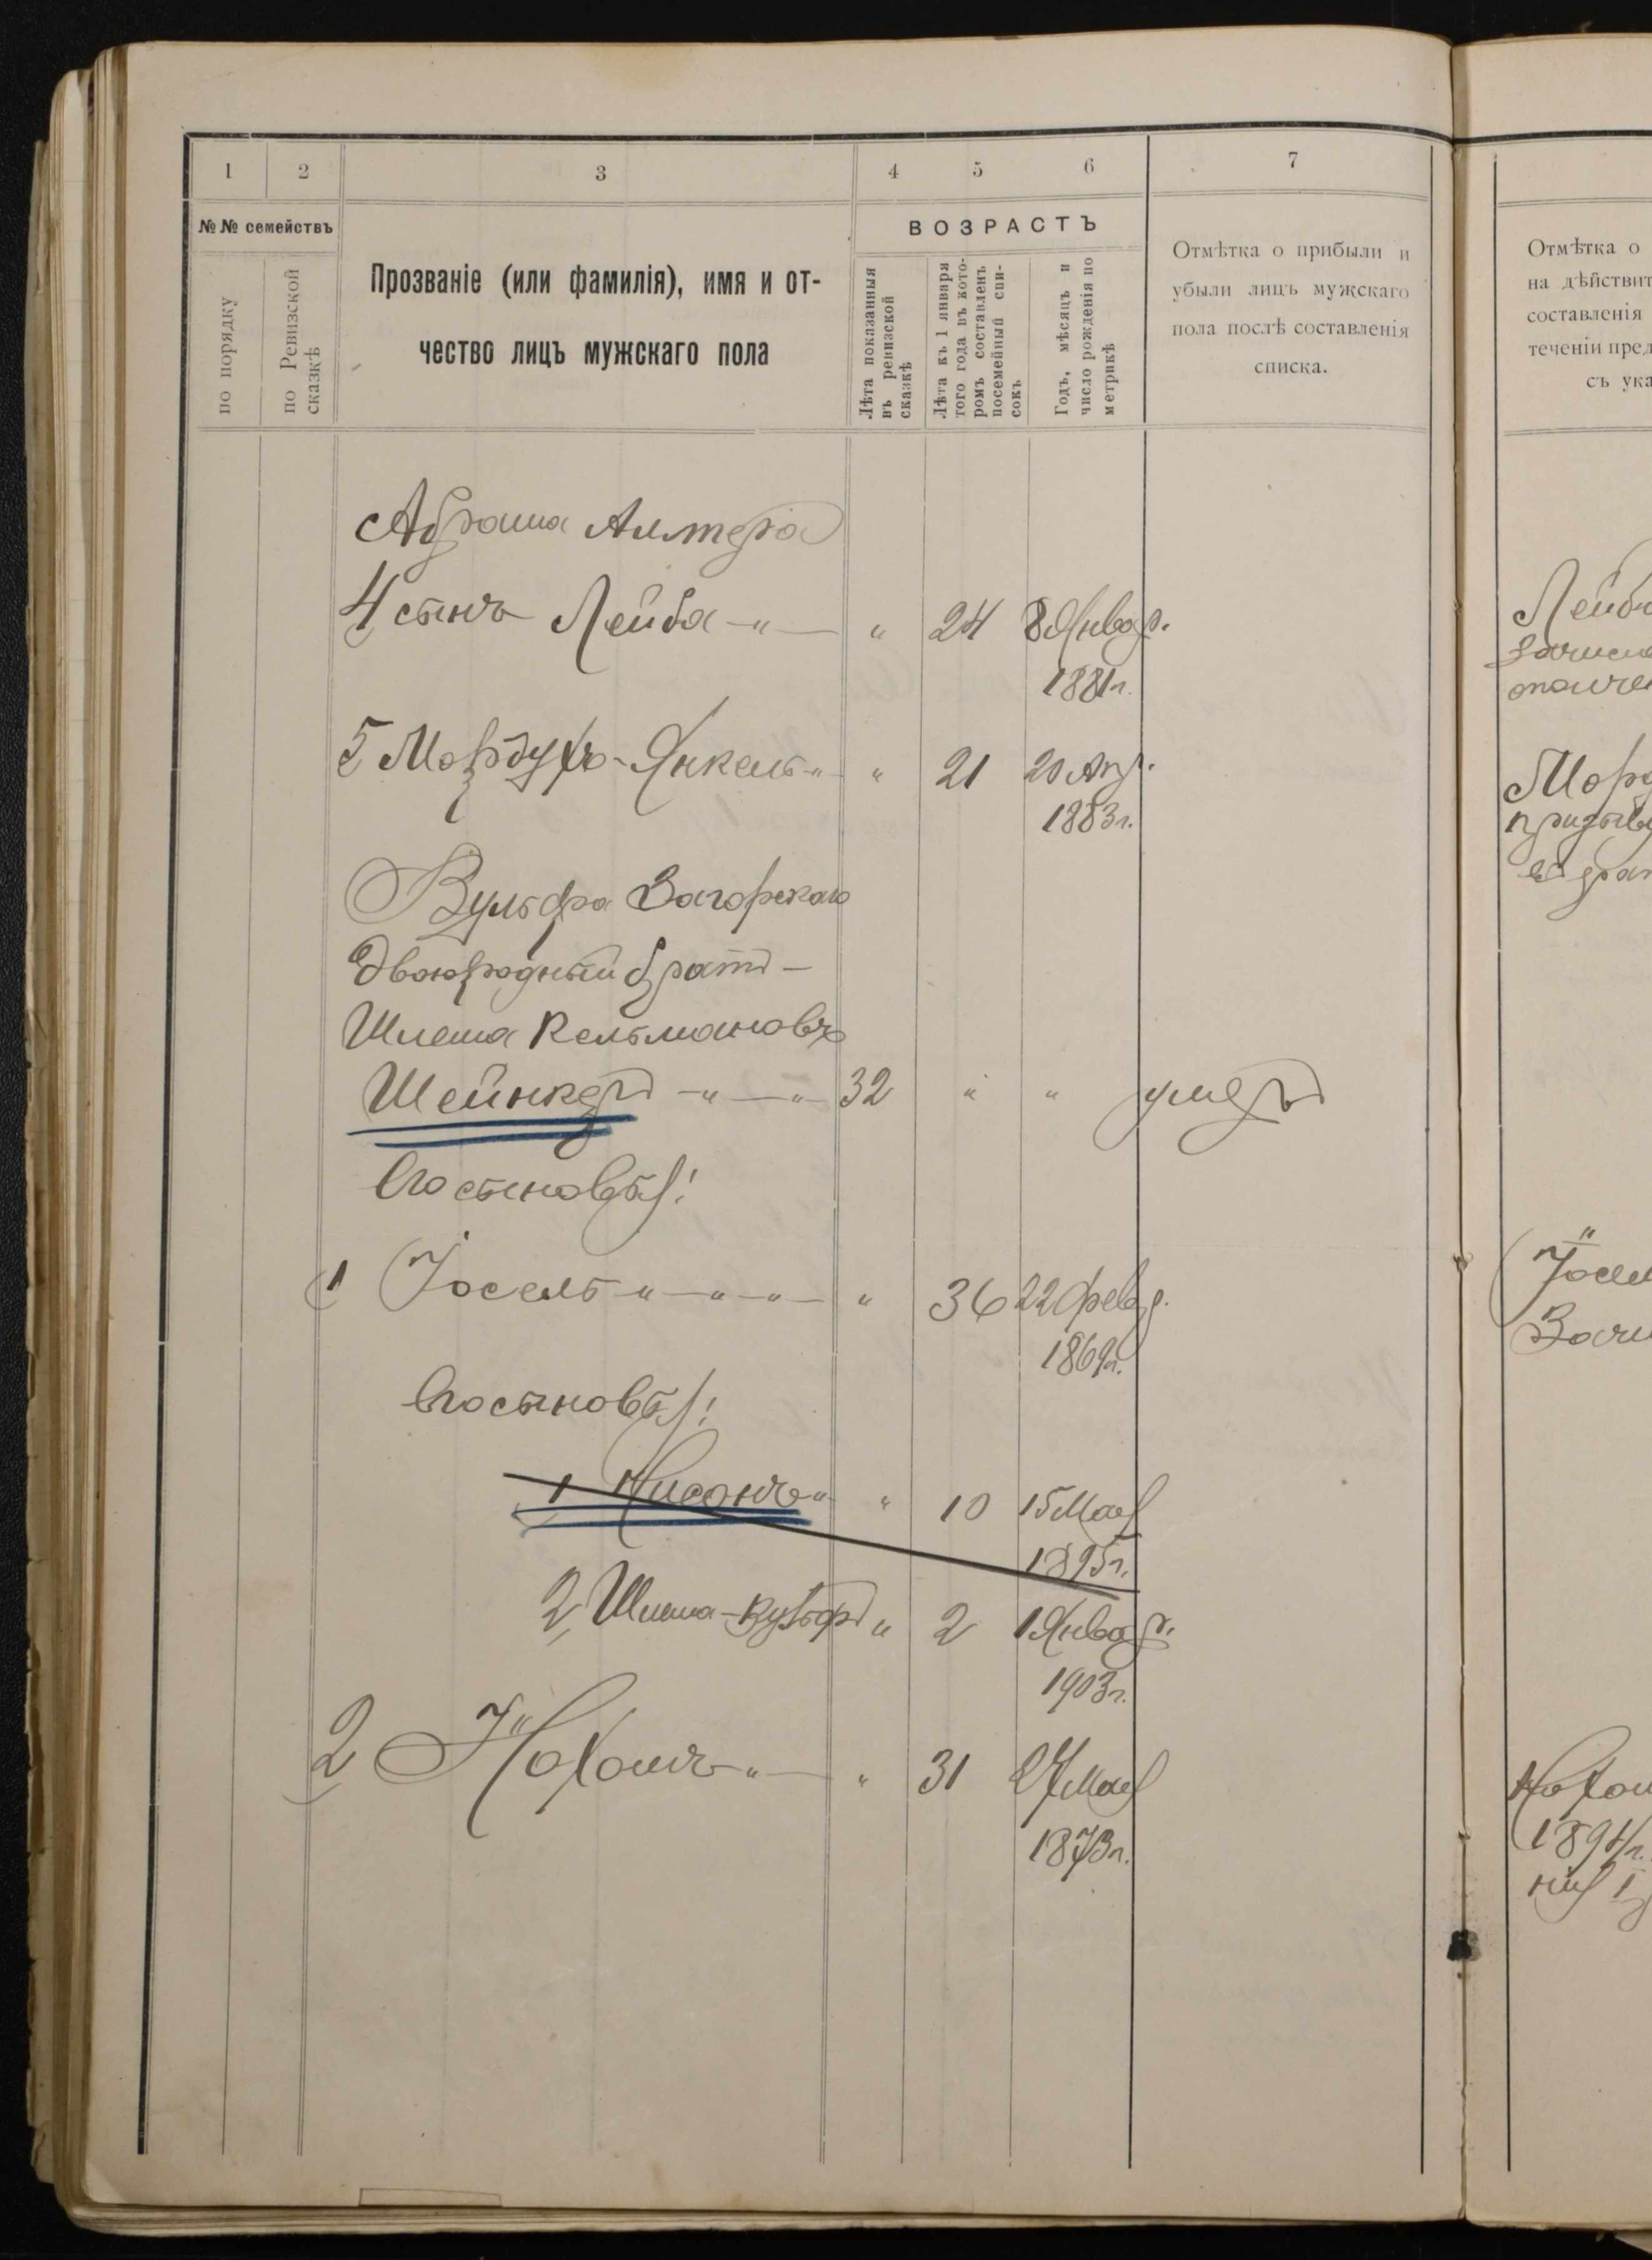 1 2 3 4 5 6 7
№№ семействъ
по порядку
по Ревизской сказкѣ
Прозваніе (или фамилія), имя и от-
чество лицъ мужскаго пола
ВОЗРАСТЪ
Лѣта показанныя
въ ревизской
сказкѣ
Лѣта къ 1 января
того года въ кото-
ромъ составленъ
посемейный спи-
сокъ
Годъ, мѣсяцъ и
число рожденія по
метрикѣ
Отмѣтка о прибыли и
убыли лицъ мужскаго
пола послѣ составленія
списка.
Отмѣтка о
на дѣйствит
составленія
теченіи пред
съ ука
Абрама Алтера
4 сынъ Лейба -"- " 24 8 Январ.
1881 г.
5 Мордухъ-Янкель -"- " 21 20 Апр.
1883 г.
Вульфа Загорскаго
двоюродный братъ -
Шлема Кельмановъ
Шейнкеръ -"-"- 32 " " умеръ
Его сыновья:
1 Іосель -"-"-"- " 36 22 Февр.
1869 г.
Его сыновья:
1 Нисонъ " " 10 15 Мая
1895 г.
2 Шлема-Вульфъ " 2 1 Январ.
1903 г.
2 Нохомъ -"- " 31 27 Мая
1873 г.
Лейба
зачисле
Морд
призыв
Іосел
Зачи
Нохом
1894 г.
нія